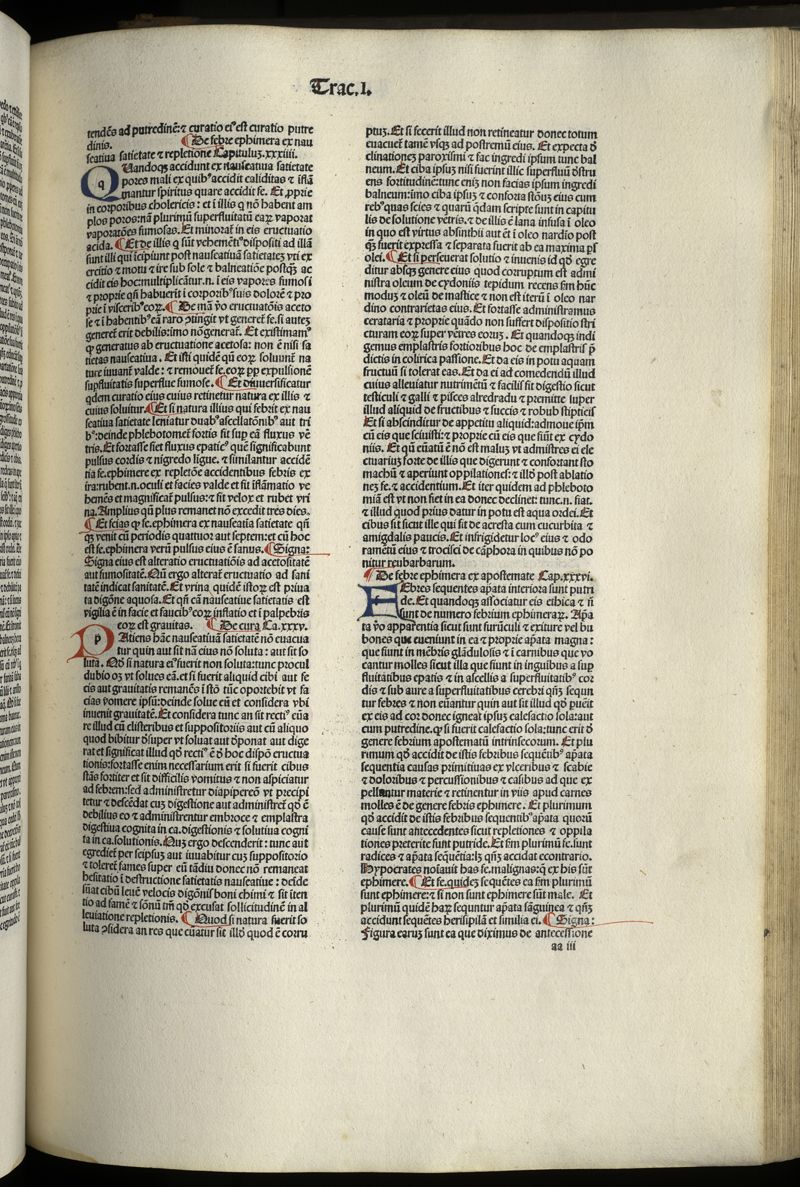 Trac.1.
tendẽs ad putredinẽ: ⁊ curatio eiꝰ est curatio putre
dinis. ¶ De febre ephimera ex nau
seatiua satietate ⁊ repletione Capituluꝫ.xxxiiii.
QUandoqꝫ accidunt ex nauseatiua satietate
q
pores mali ex quibꝰ accidit caliditas ⁊ iflã
mantur spiritus quare accidit fe. Et ꝓprie
in corporibus cholericis: et i illis q̃ nõ habent am
plos poros: nã plurimũ superfluitatũ eaꝝ vaporat
vaporatões fumosas. Et minorat̃ in eis eructuatio
acida. ¶ Et de illis q̃ sũt vehemẽtꝰ dispositi ad illã
sunt illi qui ĩcipiunt post nauseatiuã satietateꝫ vti ex
ercitio ⁊ motu ⁊ ire sub sole ⁊ balneatiõe postqꝫ ac
cidit eis hoc: multiplicãtur.n. ĩ eis vapores fumosi
⁊ proprie qñ habuerĩt ĩ corporibꝰ suis dolorẽ ⁊ pro
prie ĩ visceribꝰ eoꝝ. ¶ De mã ṽo eructuatõis aceto
se ⁊ i habentibꝰ eã raro ↄtingit vt generet̃ fe. si auteꝫ
generet̃ erit debilis: imo nõ generat̃. Et existimamꝰ
ꝙ generatus ab eructuatione acetosa: non ẽ nisi sa
tietas nauseatiua. Et isti quidẽ qñ eoꝝ soluunt̃ na
ture iuuant̃ valde: ⁊ remouet̃ fe. eoꝝ ꝓꝑ expulsionẽ
supfluitatis superflue fumose. ¶ Et diuersificatur
qdem curatio eius cuius retinetur natura ex illis ⁊
cuius soluitur. ¶ Et si natura illius qui febrit ex nau
seatiua satietate leniatur duabꝰ ascellatõnibꝰ aut tri
bꝰ: deinde phlebotomet̃ fortis sit sup eã fluxus vẽ
tris. Et fortasse fiet fluxus epaticꝰ quẽ significabunt
pulsus cordis ⁊ nigredo ligue. ⁊ similantur accidẽ
tia fe. ephimere ex repletõe accidentibus febris ex
ira: rubent.n. oculi et facies valde et fit ĩflãmatio ve
hemẽs et magnificat̃ pulsus: ⁊ fit velox et rubet vri
na. Amplius qñ plus remanet nõ excedit tres dies.
¶ Et scias ꝙ fe. ephimera ex nauseatiã satietate qñ
qꝫ venit cũ periodis quattuor aut septem: et cũ hoc
est fe. ephimera verũ pulsus eius ẽ sanus. ¶ Signa:
Signa eius est alteratio eructuatiõis ad acetositatẽ
aut fumositatẽ. Qũ ergo alterat̃ eructuatio ad sani
tatẽ indicat sanitatẽ. Et vrina quidẽ istoꝝ est priua
ta digõne aquosa. Et qñ cã nauseatiue satietatis est
vigilia ẽ in facie et faucibꝰ eoꝝ inflatio et i palpebris
eoꝝ est grauitas. ¶ De cura Ca.xxxv.
p
PAtiens hãc nauseatiuã satietatẽ nõ euacua
tur quin aut sit nã eius nõ soluta: aut sit so
luta. Qđ si natura eiꝰ fuerit non soluta: tunc procul
dubio oꝫ vt solues eã. et si fuerit aliquid cibi aut fe
cis aut grauitatis remanẽs i stõ tũc oportebit vt fa
cias vomere ipsũ: deinde solue cũ et considera vbi
inuenit grauitatẽ. Et considera tunc an sit rectiꝰ eua
re illud cũ clisteribus et suppositoriis aut cũ aliquo
quod bibitur dsuper vt soluat aut dponat aut dige
rat et significat illud qđ rectiꝰ ẽ đ hoc dispõ eructua
tionis: fortasse enim necessarium erit si fuerit cibus
stãs fortiter et sit difficilis vomitus ⁊ non aspiciatur
ad febrem: sed administretur diapipereõ vt precipi
tetur ⁊ descẽdat cuꝫ digestione aut administret̃ qđ ẽ
debilius eo ⁊ administrentur embroce ⁊ emplastra
digestiua cognita in ca. digestionis ⁊ solutiua cogni
ta in ca. solutionis. Quꝫ ergo descenderit: tunc aut
egrediet̃ per seipsuꝫ aut iuuabitur cuꝫ suppositorio
⁊ toleret fames super eũ tãdiu donec nõ remaneat
hesitatio ĩ destructione satietatis nauseatiue: deĩde
sũat cibũ leuẽ velocis digõnis boni chimi ⁊ sit iten
tio ad famẽ ⁊ sõnũ tm̃ qđ excusat sollicitudinẽ in al
leuiatione repletionis. ¶ Quod si natura fuerit so
luta ↄsidera an res que euat̃ur sit illđ quod ẽ corru
ptuꝫ. Et si fecerit illud non retineatur donec totum
euacuet̃ tamẽ vsqꝫ ad postremũ eius. Et expecta đ
clinationeꝫ paroxismi ⁊ fac ingredi ipsum tunc bal
neum. Et ciba ipsuꝫ nisi fuerint illic superfluũ dstru
ens fortitudinẽ: tunc eniꝫ non facias ipsum ingredi
balneum: imo ciba ipsuꝫ ⁊ conforta stõuꝫ eius cum
rebꝰ quas scies ⁊ quarũ qdam scripte sunt in capitu
lis de solutione vẽtris. ⁊ de illis ẽ lana infusa ĩ oleo
in quo est virtus absinthii aut ẽt i oleo nardio post
qꝫ fuerit expressa ⁊ separata fuerit ab ea maxima ꝑs
olei. ¶ Et si perseuerat solutio ⁊ inuenis id qđ egre
ditur absqꝫ genere eius quod corruptum est admi
nistra oleum de cydoniis tepidum recens fm̃ hũc
moduꝫ ⁊ oleũ de mastice ⁊ non est iterũ ĩ oleo nar
dino contrarietas eius. Et fortasse administramus
cerataria ⁊ proprie quãdo non suffert dispositio stri
cturam eoꝝ super vẽtres eoruꝫ. Et quandoqꝫ indi
gemus emplastris fortioribus hoc de emplastris p̃
dictis in colirica passione. Et da eis in potu aquam
fructuũ si tolerat eas. Et da ei ad comedendũ illud
cuius alleuiatur nutrimẽtũ ⁊ facilis sit digestio sicut
testiculi ⁊ galli ⁊ pisces alrađradu ⁊ premitte super
illud aliquid de fructibus ⁊ succis ⁊ robub stipticis
Et si absciinditur de appetitu aliquid: admoue ipm̃
cũ eis que sciuisti: ⁊ proprie cũ eis que siũt ex cydo
niis. Et qũ euatũ ẽ nõ est maluꝫ vt admistres ei ele
ctuariuꝫ forte de illis que digerunt ⁊ confortant sto
machũ ⁊ aperiunt oppilationes: ⁊ illđ post ablatim
neꝫ fe. ⁊ accidentium. Et iter quidem ad phleboto
miã est vt non fiet in ea donec declinet: tunc.n. fiat.
⁊ illud quod prius datur in potu est aqua ordei. Et
cibus fit sicut ille qui fit de acresta cum cucurbita ⁊
amigdalis paucis. Et infrigidetur locꝰ eius ⁊ odo
ramẽtũ eius ⁊ trocisci de cãphora in quibus nõ po
nitur reubarbarum.
¶ De febre ephimera ex apostemate Cap.xxxvi.
FEbres sequentes apata interiora sunt putri
de. Et quandoqꝫ associatur eis ethica ⁊ si
sunt de numero febrium ephimeraꝝ. Apa
ta ṽo apparẽtia sicut sunt furũculi ⁊ exiture vel bu
bones que eueniunt in ea ⁊ proprie apata magna:
que fiunt in mẽbris glãdulosis ⁊ ĩ carnibus que vo
cantur molles sicut illa que fiunt in inguibus a sup
fluitatibus epatis ⁊ in ascellis a superfluitatibꝰ cor
dis ⁊ sub aure a superfluitatibus cerebri qñꝫ sequn
tur febres ⁊ non euãntur quin aut sit illud qđ puẽit
ex eis ad cor donec igneat ipsuꝫ calefactio sola: aut
cum putredine. ꝙ si fuerit calefactio sola: tunc erit đ
genere febrium apostematũ intrinsecorum. Et plu
rimum qđ accidit de istis febribus sequẽtibꝰ apata
sequentia causas primitiuas ex vlceribus ⁊ scabie
⁊ doloribus ⁊ percussionibus ⁊ casibus ad que ex
pellantur materie ⁊ retinentur in viis apud carnes
molles ẽ de genere febris ephimere. Et plurimum
qđ accidit de istis febribus sequentibꝰ apata quorũ
cause sunt antecedentes sicut repletiones ⁊ oppila
tiones preterite sunt putride. Et fm̃ plurimũ fe. sunt
radices ⁊ apata sequẽtia: lꝫ qñꝫ accidat econtrario.
Hypocrates noĩauit has fe. malignas: ꝙ ex his sũt
ephimere. ¶ Et fe. quideꝫ sequẽtes ea fm̃ plurimũ
sunt ephimere: ⁊ si non sunt ephimere sũt male. Et
plurimũ quidẽ haꝝ sequntur apata sãguinea ⁊ qñꝫ
accidunt sequẽtes herisipilã et similia ei. ¶ Signa:
Figura earuꝫ sunt ea que diximus de antecessione
aa iii